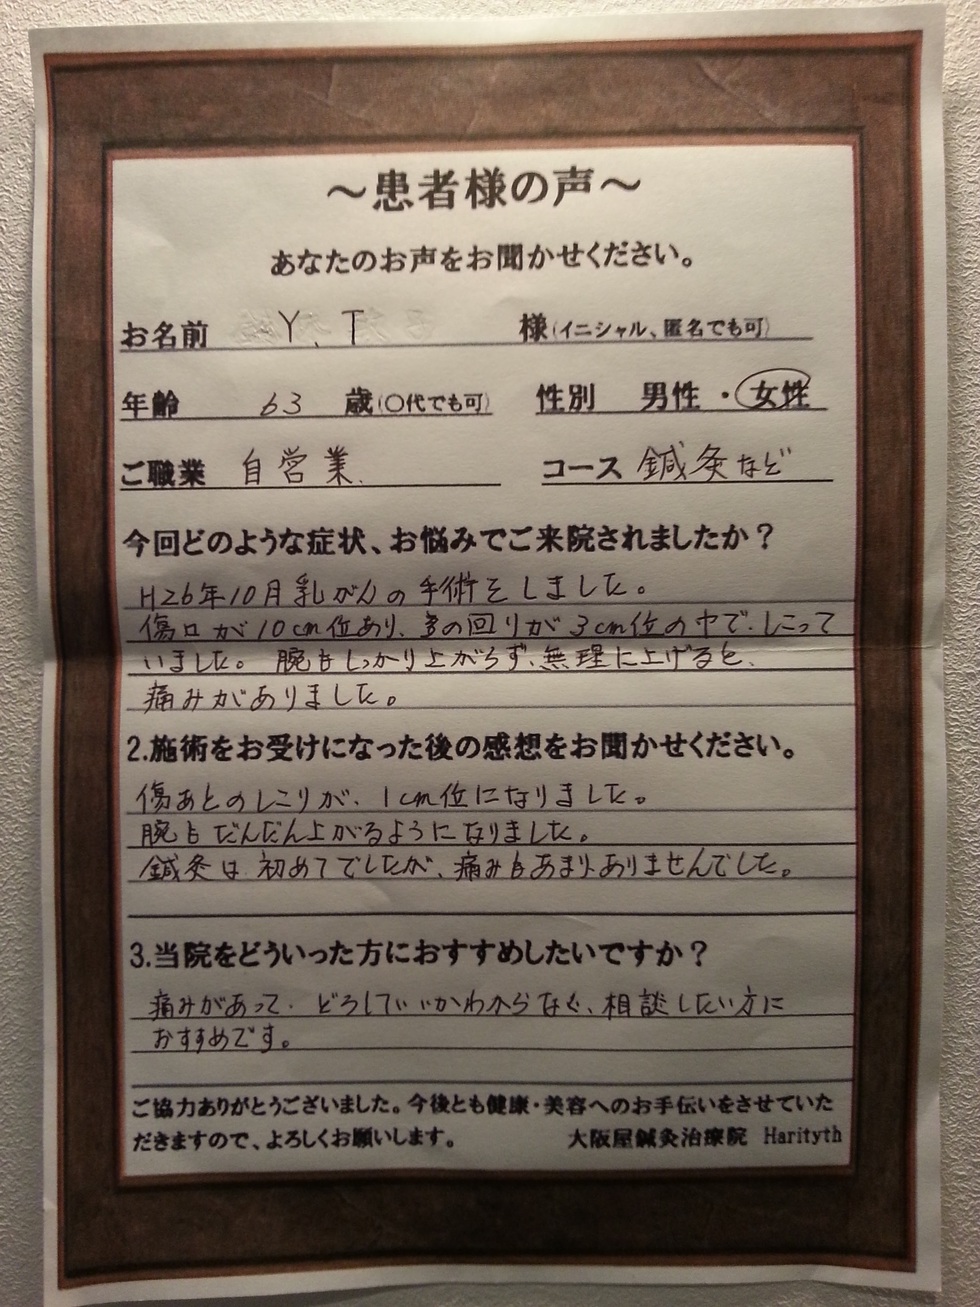 ～患者様の声～
あなたのお声をお聞かせください。
お名前 Y、T 様(イニシャル、匿名でも可)
年齢 63 歳(〇代でも可) 性別 男性・女性
ご職業 自営業. コース 鍼灸など
今回どのような症状、お悩みでご来院されましたか？
H26年10月乳がんの手術をしました。
傷口が10cm位あり、その回りが3cm位の中で、しこって
いました。腕もしっかり上がらず、無理に上げると、
痛みがありました。
2.施術をお受けになった後の感想をお聞かせください。
傷あとのしこりが、1cm位になりました。
腕もだんだん上がるようになりました。
鍼灸は初めてでしたが、痛みもあまりありませんでした。
3.当院をどういった方におすすめしたいですか？
痛みがあって、どうしていいかわからなく、相談したい方に
おすすめです。
ご協力ありがとうございました。今後とも健康・美容へのお手伝いをさせていた
だきますので、よろしくお願いします。 大阪屋鍼灸治療院 Harityth